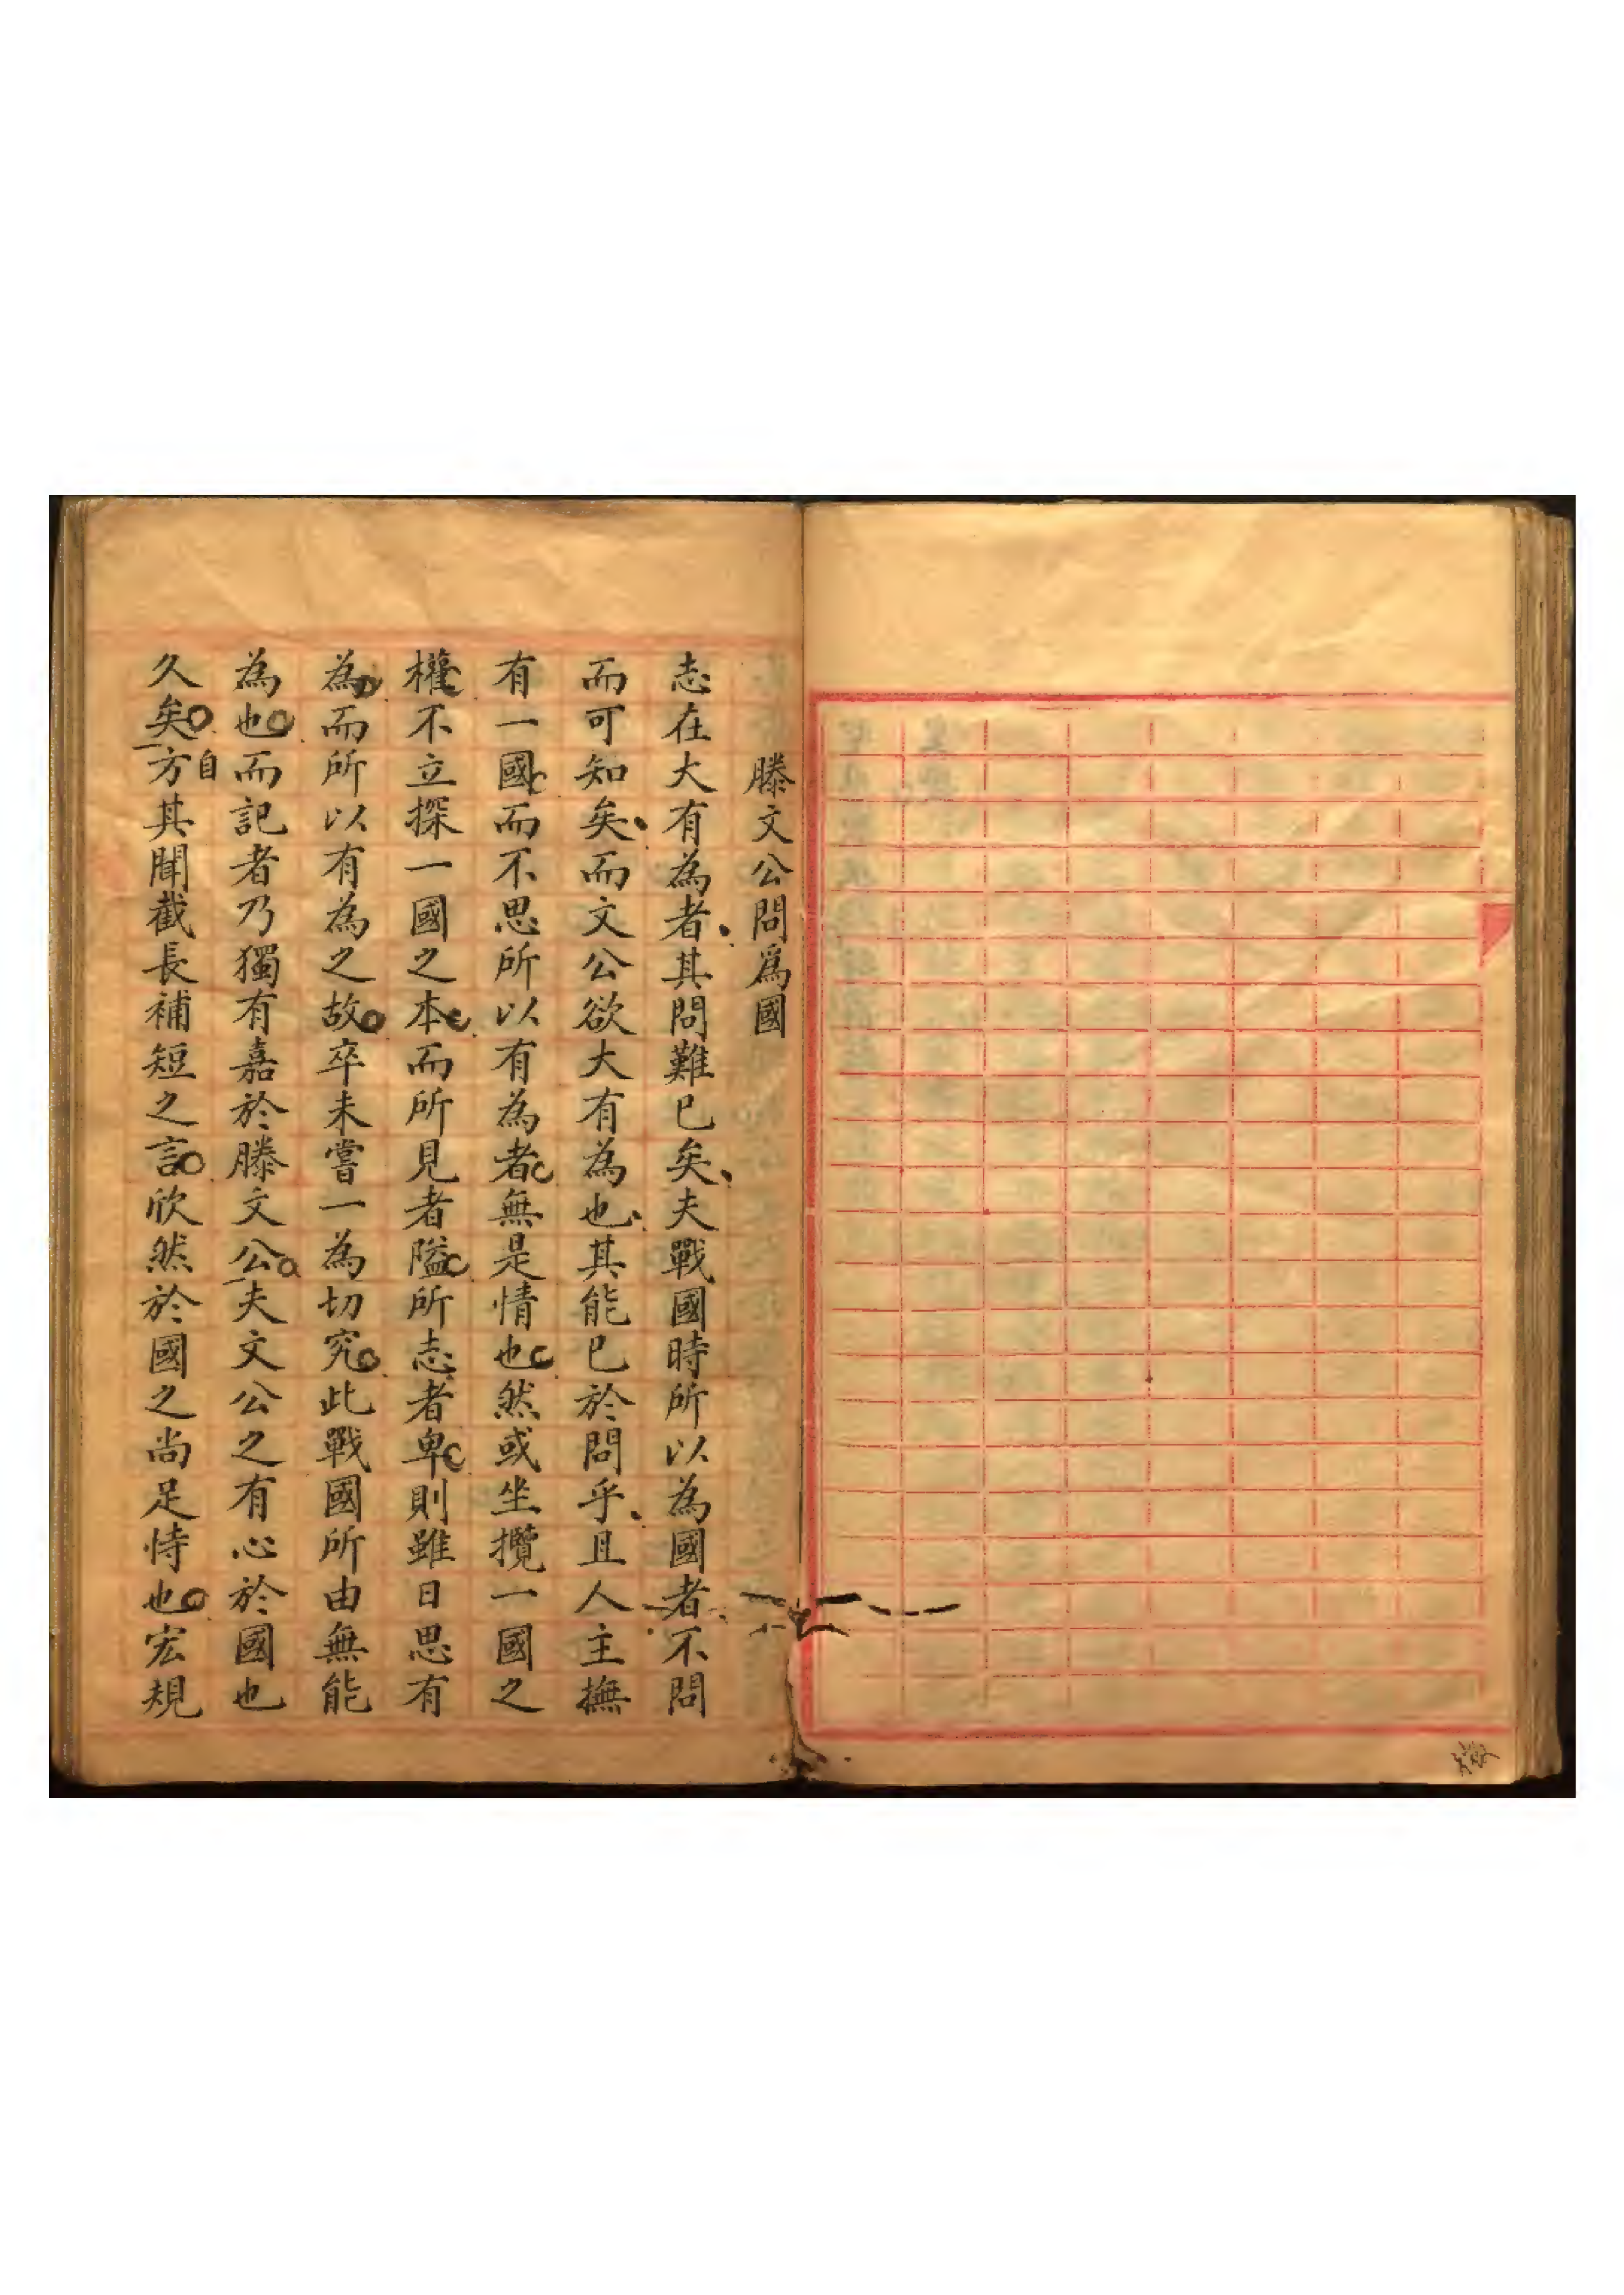 滕文公問爲國
志在大有為者其問難已矣夫戰國時所以為國者不問
而可知矣而文公欲大有為也其能已於問乎且人主撫
有一國而不思所以有為者無是情也然或坐攬一國之
權不立探一國之本而所見者隘所志者卑則雖日思有
為而所以有為之故卒未嘗一為切究此戰國所由無能
為也而記者乃獨有嘉於滕文公夫文公之有心於國也
久矣自方其聞截長補短之言欣然於國之尚足恃也宏規